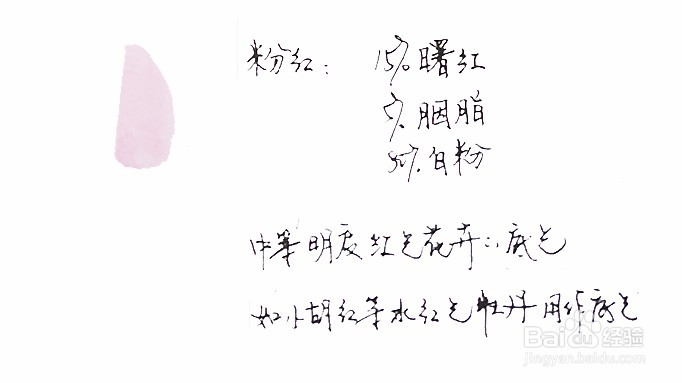 粉红: 15% 曙红
5% 胭脂
80% 白粉
中等明度红色花卉之底色
如小胡红等水红色牡丹用作底色
Baidu 经验
jingyan.baidu.com